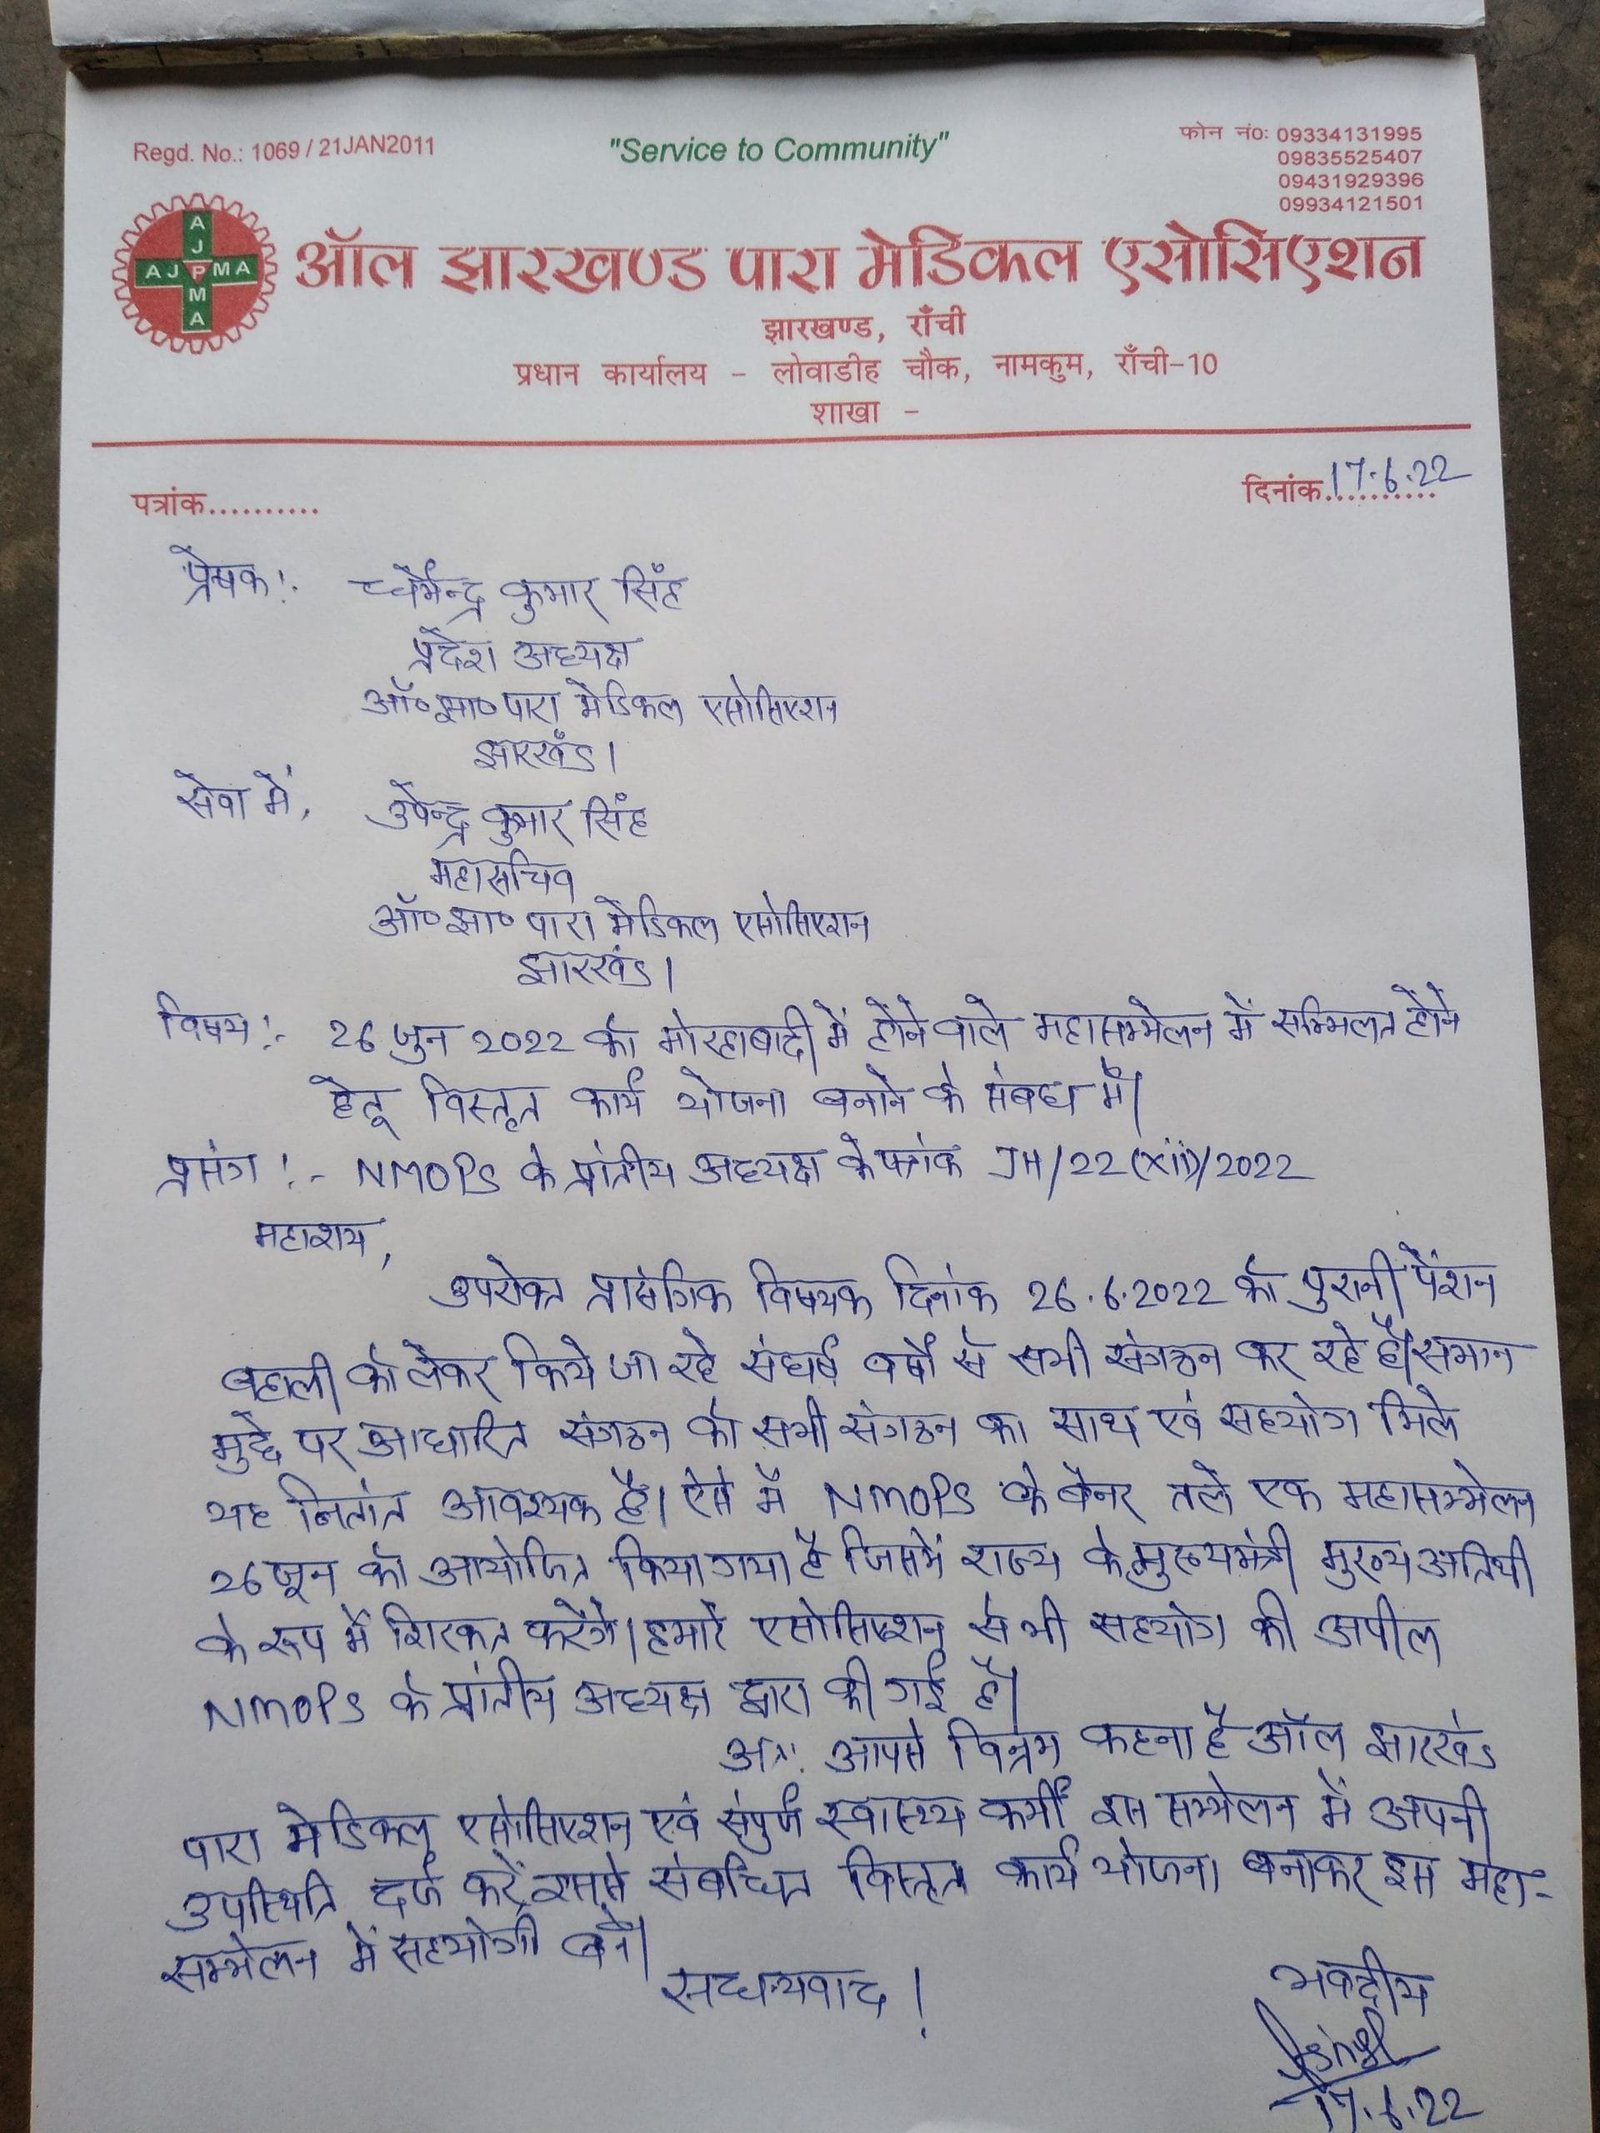 Regd. No.: 1069 / 21JAN2011
"Service to Community"
फोन नं०: 09334131995
09835525407
09431929396
09934121501
AJPMA
AJPMA
ऑल झारखण्ड पारा मेडिकल एसोसिएशन
झारखण्ड, राँची
प्रधान कार्यालय - लोवाडीह चौक, नामकुम, राँची-10
शाखा -
पत्रांक..........
दिनांक 17.6.22
प्रेषक:- धर्मेन्द्र कुमार सिंह
प्रदेश अध्यक्ष
ऑ० झा० पारा मेडिकल एसोसिएशन
झारखंड।
सेवा में, उपेन्द्र कुमार सिंह
महासचिव
ऑ० झा० पारा मेडिकल एसोसिएशन
झारखंड।
विषय:- 26 जुन 2022 को मोरहाबादी में होने वाले महासम्मेलन में सम्मिलत होने
हेतू विस्तृत कार्य योजना बनाने के संबध में।
प्रसंग:- NMOPS के प्रांतीय अध्यक्ष के पत्रांक JH/22(xii)/2022
महाशय,
उपरोक्त प्रासंगिक विषयक दिनांक 26.6.2022 को पुरानी पेंशन
बहाली को लेकर किये जा रहे संघर्ष वर्षों से सभी संगठन कर रहे है। समान
मुद्दे पर आधारित संगठन को सभी संगठन का साथ एवं सहयोग मिले
यह नितांत आवश्यक है। ऐसे में NMOPS के बैनर तले एक महासम्मेलन
26 जून को आयोजित किया गया है जिसमें राज्य के मुख्यमंत्री मुख्य अतिथी
के रूप में शिरकत करेंगे। हमारे एसोसिएशन से भी सहयोग की अपील
NMOPS के प्रांतीय अध्यक्ष द्वारा की गई है।
अतः आपसे विनम्र कहना है ऑल झारखंड
पारा मेडिकल एसोसिएशन एवं संपुर्ण स्वास्थ्य कर्मी इस सम्मेलन में अपनी
उपस्थिति दर्ज करें, इससे संबधित विस्तृत कार्य योजना बनाकर इस महा-
सम्मेलन में सहयोगी बनें।
सधन्यवाद!
भवदीय
17.6.22